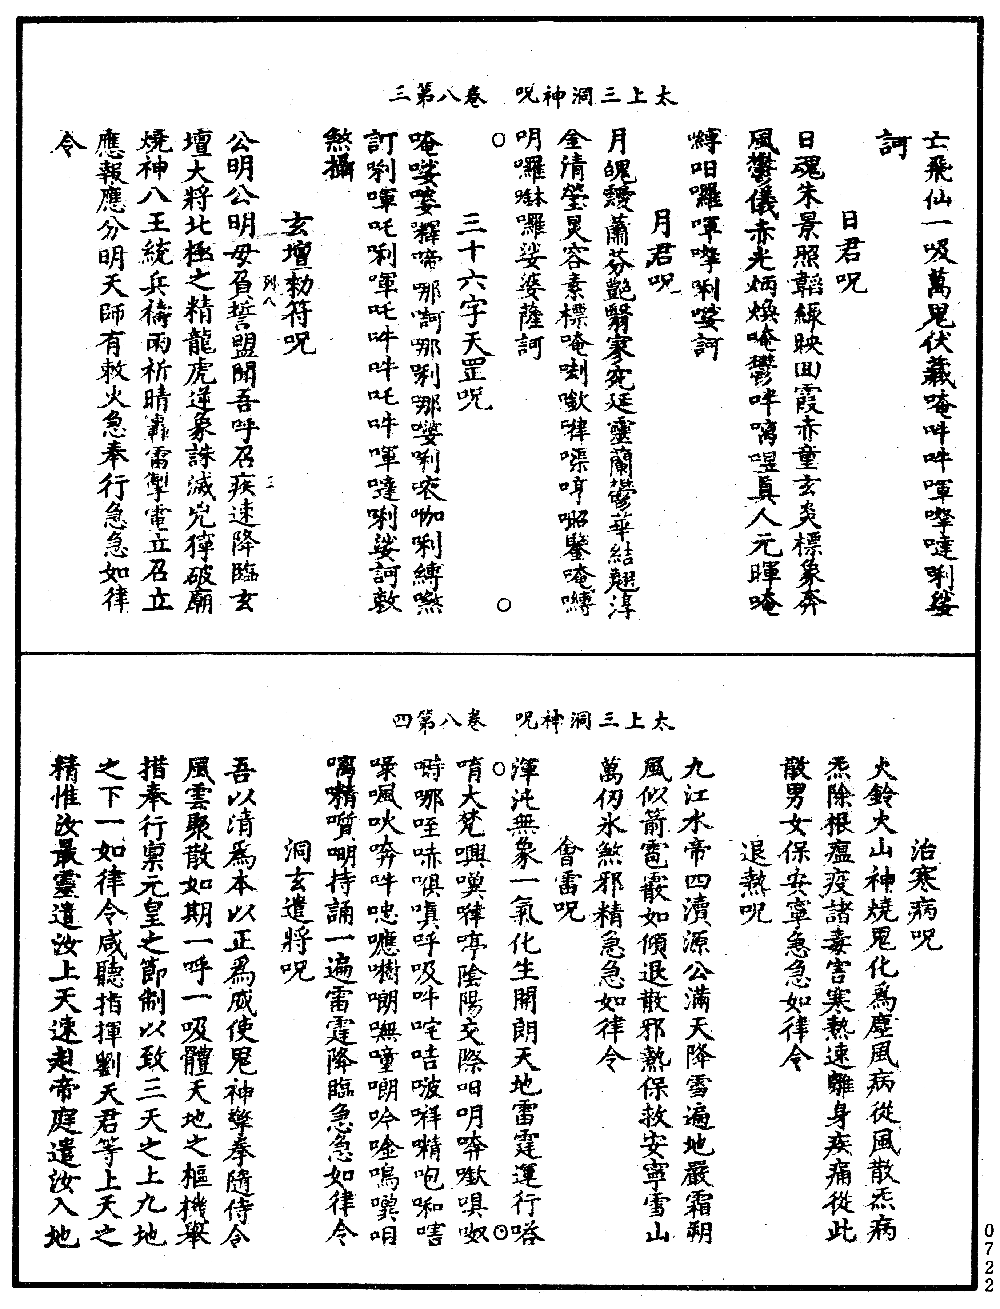 太上三洞神呪　卷八第三
亡飛仙一吸萬鬼伏藏唵吽吽㖶㗫噠唎娑
訶
日君呪
日魂朱景照韜綠映囬霞赤童玄炎標象奔
風鬱儀赤光炳煥唵鬱吽㗿喤眞人元暉唵
縛呾囉㖶㗫唎娑訶
月君呪
月魄靉蕭芬艷翳寥宛廷靈蘭鬱華結翹淳
全清瑩炅容素標唵喇㗑嘩㗚哼㗙鑒唵嚩
明囉㖼囉娑婆薩訶
三十六字天罡呪
唵娑婆釋啼哪訶哪唎哪婆唎㖠㗎唎縛㗫
訂唎㖶吒唎㖶吒吽吽吒吽㖶噠唎娑訶敕
煞攝
玄壇勅符呪
公明公明毋負誓盟聞吾呼召疾速降臨玄
壇大將北極之精龍虎逆象誅滅兇獰破廟
燒神八王統兵禱雨祈晴轟雷掣電立召立
應報應分明天師有敕火急奉行急急如律
令
列八
三
太上三洞神呪　卷八第四
治寒病呪
火鈴大山神燒鬼化爲塵風病從風散炁病
炁除根瘟疫諸毒害寒熱速離身疾痛從此
散男女保安寧急急如律令
退熱呪
九江水帝四瀆源公滿天降雪遍地嚴霜朔
風似箭雹霰如傾退散邪熱保救安寧雪山
萬仞氷煞邪精急急如律令
會雷呪
渾沌無象一氣化生開朗天地雷霆運行㗋
唷大梵㗨嘆嘩啍陰陽交際呾明㗙㗑唄呶
㗭哪咥哧嗔嗔呼吸吽咤咭啵哶㗗咆和嗐
㗱㗘吙㗙吽唿噟㗳啷嘸㗰啷吟唫嗚㘔㕶
㗿㗗噴嘲持誦一遍雷霆降臨急急如律令
洞玄遣將呪
吾以清爲本以正爲威使鬼神擎奉隨侍令
風雲聚散如期一呼一吸體天地之樞機舉
措奉行稟元皇之節制以致三天之上九地
之下一如律令咸聽指揮劉天君等上天之
精惟汝最靈遣汝上天速赴帝庭遣汝入地
0722